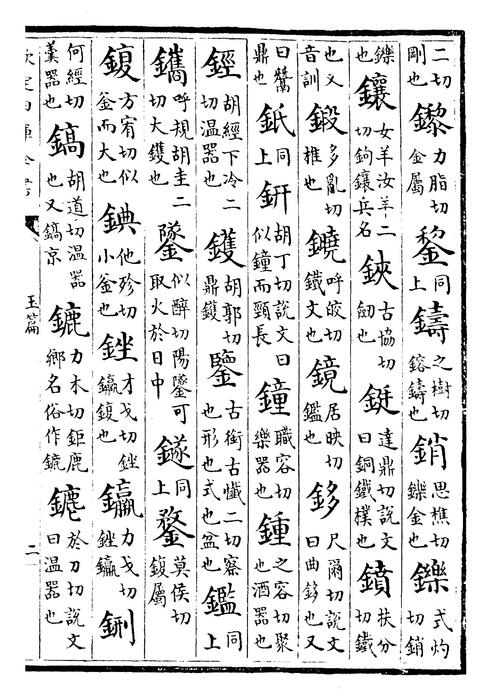 二切剛也 鑗 力脂切金屬 鋫 同上 鑄 之樹切鎔鑄也 銷 思樵切鑠金也 鑠 式灼切銷
鑠也 鑲 女羊汝羊二切鉤鑲兵名 鋏 古協切劒也 鋌 達鼎切說文曰銅鐵樸也 鐼 扶分切鐵
也又音訓 鍛 多亂切椎也 鐃 呼皎切鐵文也 鏡 居映切鑑也 鉹 尺爾切說文曰曲鉹也又
曰鬵鼎也 同上 鈃 胡丁切說文曰似鐘而頸長 鐘 職容切樂器也 鍾 之容切聚也酒器也
鋞 胡經下冷二切溫器也 鑊 胡郭切鼎鑊 鑒 古銜古懺二切察也形也式也盆也 鑑 同上
鑴 呼規胡圭二切大鑊也 鐆 似醉切陽鐆可取火於日中 鐩 同上 鍪 莫侯切鍑屬
鍑 方宥切似釜而大也 錪 他殄切小釜也 銼 才戈切銼𨰠鍑也 𨰠 力戈切銼𨰠 鉶
何經切羹器也 鎬 胡道切溫器也又鎬京 鏕 力木切鉅鹿鄉名俗作 於刀切說文曰溫器也
玉篇
二